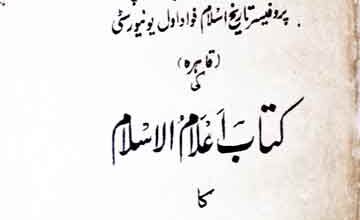 پروفیسر تاریخ اسلام فواد اول یونیورسٹی
(قاہرہ)
کی
کتاب اَعلامُ الاسلام
کا